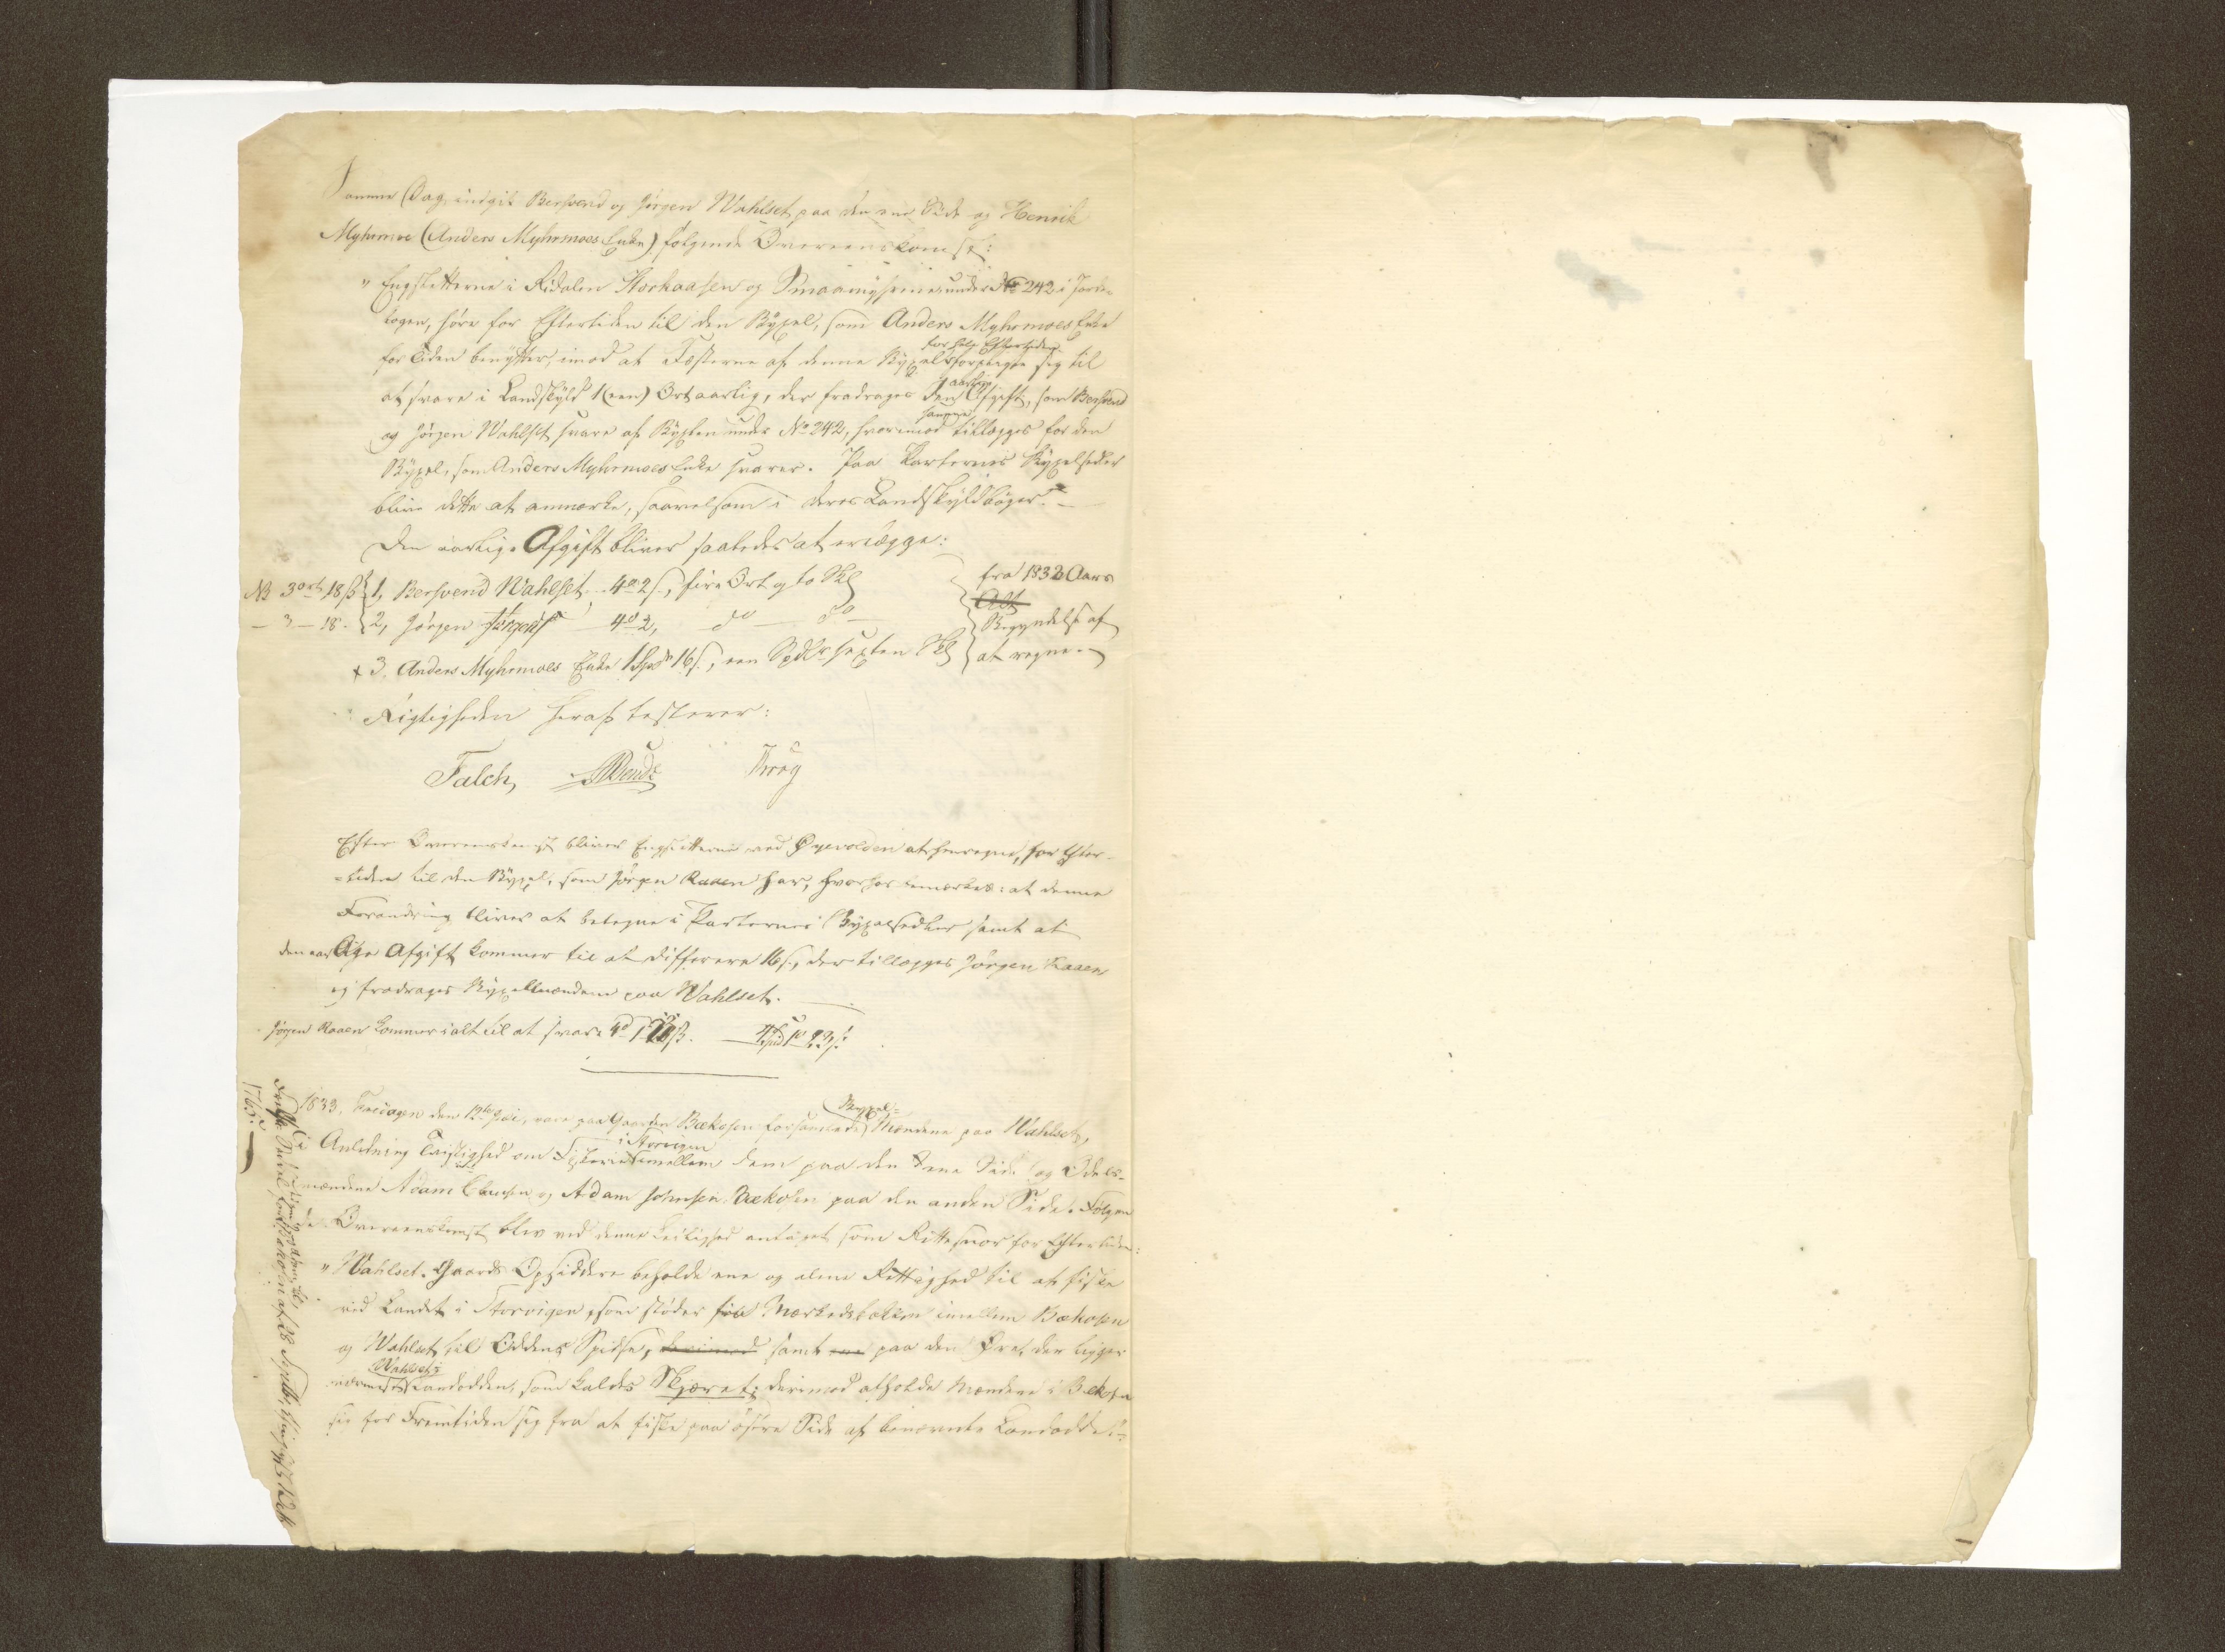 Samme Dag indgik Bersvend og Jørgen Wahlset paa den ene Side og Henrik
Myhrmoe (Anders Myhrmoes Enke) følgende Overeenskomst:
"Engsletterne i Aidalen Storhaasen og Smaamyhrene under No 242 i Jorde-
bogen, høre for Eftertiden til den Bygsel, som Anders Myhrmoes Enke
for Tiden benytter, imod at Fæsterne af denne Bygsel forpligte sig til
for hele Eftertiden
at svare i Landskyld 1 (een) Ort aarlig, der fradrages den Afgift, som Bersvend
aarlige
og Jørgen Wahlset svare af Bygslen under No 242, hvorimod tillægges for den
samme
Bygsel, som Anders Myhrmoes Enke svarer. Paa Parternes Bygselsedler
blive dette at anmærke, saavelsom i deres Landskyldbøger." —
Den aarlige Afgift bliver saaledes at erlægge:
NB 3 ort 18 ß 1, Bersvend Wahlset 4 o 2 s, fire Ort og to Skl
— 3 — 18. 2, Jørgen 4 o 2, do — do —
+ 3. Anders Myhrmoes Enke 1 Spd 16 s, een Spdlr sexten Skl
fra 1832 Aars
Begyndelse af
at regne.
Rigtigheden heraf testerer:
Falch,
Efter Overeenskomst bliver Engsletterne ved Øyevolden at henregne, for Efter-
-tiden til den Bygsel, som Jørgen Raaen har, hvorhos bemærkes: at denne
Forandring bliver at betegne i Parternes Bygselsedler samt at
den aarlige Afgift kommer til at differere 16 s, der tillægges Jørgen Raaen
og fradrages Bygselmændene paa Wahlset. —
Jørgen Raaen kommer ialt til at svare
1833, Fredagen den 12te Juli, vare paa Gaarden Bækosen forsamlede Mændene paa Wahlset,
Bygsel-
i Anledning Tvistighed om Fiskeriet imellem dem paa den Eene Side og Odels-
i Storvigen
mændene Adam Clausen og Adam Johnsen Bækosen paa den anden Side. Følgen
de Overeenskomst blev ved denne Leilighed antaget som Rettesnor for Eftertiden:
"Wahlset Gaards Opsiddere beholde ene og alene Rettighed til at fiske
ved Landet i Storvigen, som støder til Mærkedsbækken imellem Bækosen
og Wahlset til Oddens Spidse, samt paa den Øre, der ligger
nærmest Landodden, som kaldes Skjæret; derimod afholde Mændene i Bækosen
Wahlset
sig for Fremtiden sig fra at fiske paa østre Side af benævnte Landodde."
1765.